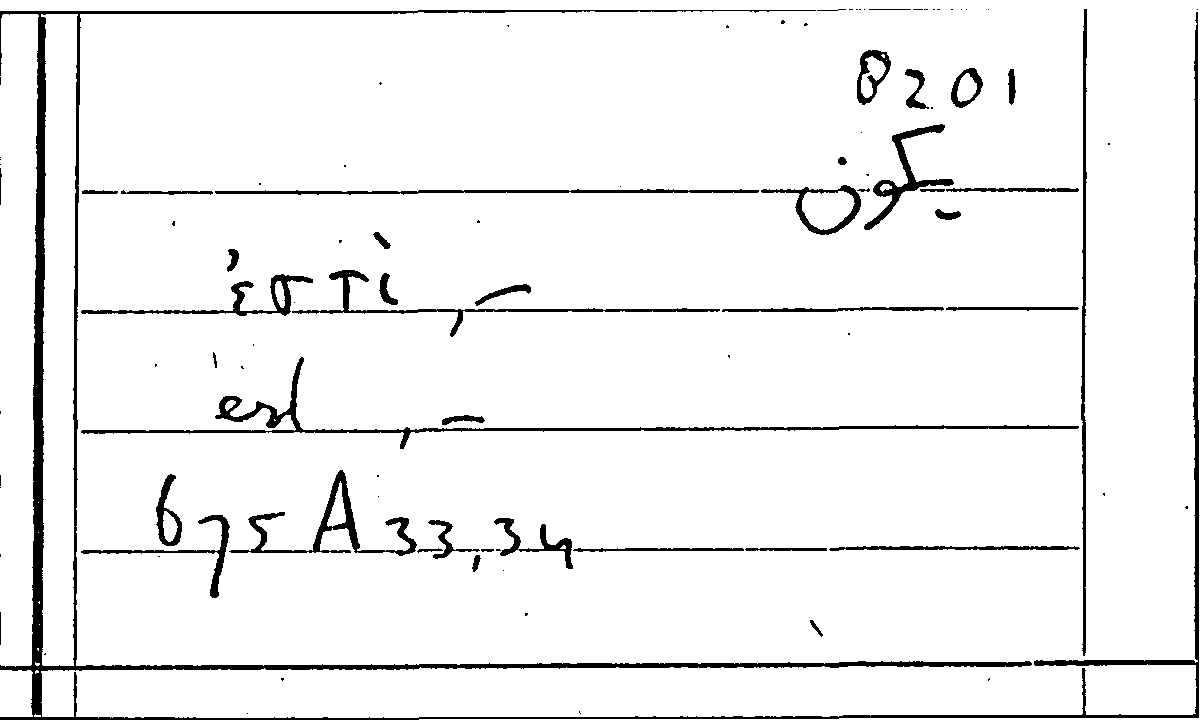 8201
يكون
ἐστὶ, –
est, –
675 A 33, 34